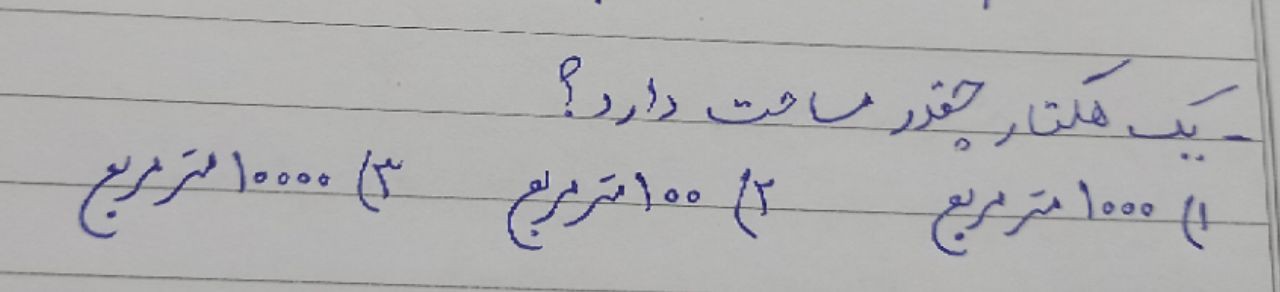 - یک هکتار چقدر مساحت دارد؟
۱) ۱۰۰۰ متر مربع ۲) ۱۰۰ متر مربع ۳) ۱۰۰۰۰ متر مربع